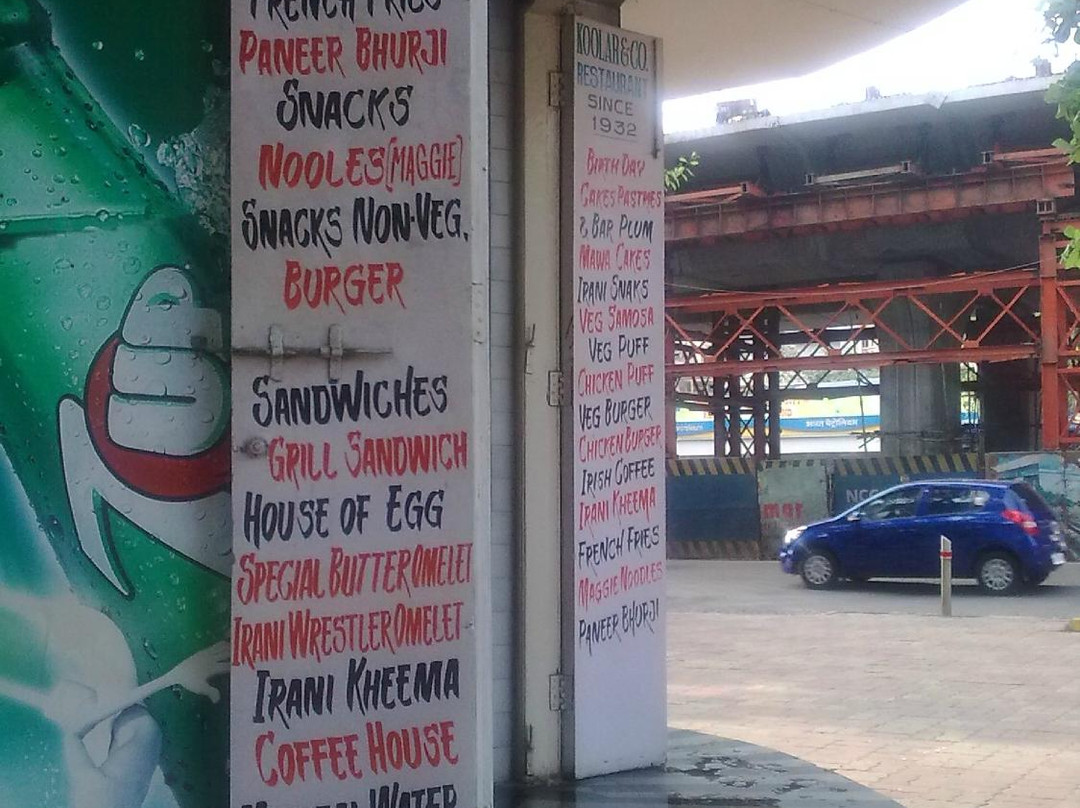 FRENCH FRIES
PANEER BHURJI
SNACKS
NOOLES(MAGGIE)
SNACKS NON-VEG.
BURGER
SANDWICHES
GRILL SANDWICH
HOUSE OF EGG
SPECIAL BUTTER OMELET
IRANI WRESTLER OMELET
IRANI KHEEMA
COFFEE HOUSE
WATER
KOOLAR & CO.
RESTAURANT
SINCE
1932
BIRTH DAY
CAKES PASTRIES
& BAR PLUM
MAWA CAKES
IRANI SNAKS
VEG SAMOSA
VEG PUFF
CHICKEN PUFF
VEG BURGER
CHICKEN BURGER
IRISH COFFEE
IRANI KHEEMA
FRENCH FRIES
MAGGIE NOODLES
PANEER BHURJI
भारत पेट्रोलियम
NCC